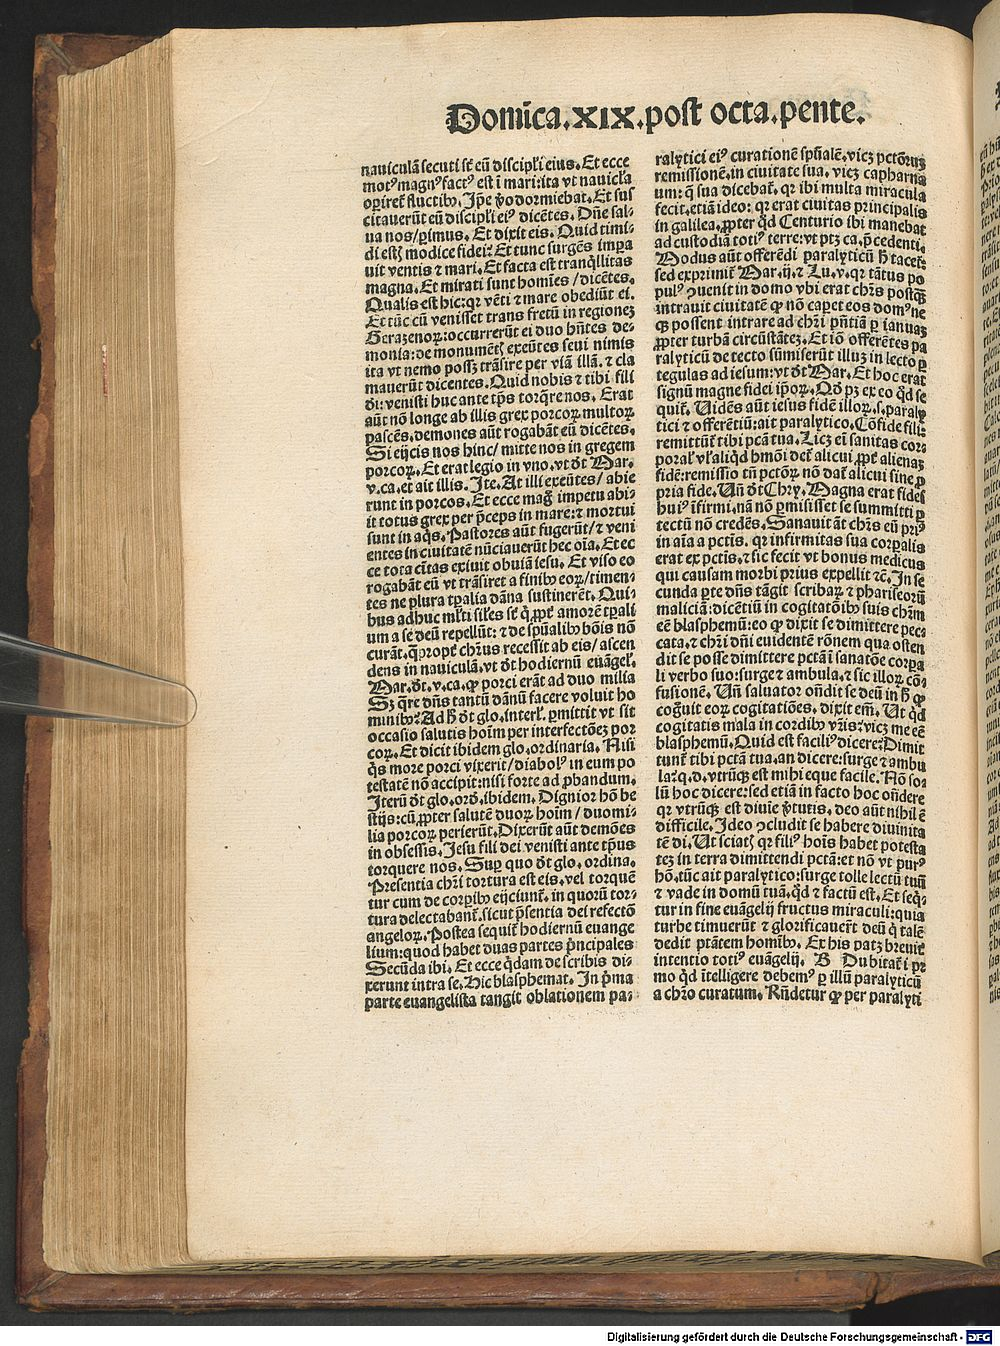 Domīca.XIX.post octa.pente.
nauiculā secuti sūt eū discipl'i eius. Et ecce
mot⁹ magn⁹ fact⁹ est ī mari: ita vt nauicl'a
opiret᷑ fluctibꝰ. Ip̄e ꝟo dormiebat. Et sus
citauerūt eū discipl'i ei⁹ dicētes. Dn̄e sal⸗
ua nos/ perimus. Et dixit eis. Quid timi⸗
di estꝭ modice fidei? Et tunc surgēs impa
uit ventis ⁊ mari. Et facta est tranq̇llitas
magna. Et mirati sunt homīes / dicētes.
Qualis est hic: qꝛ vēti ⁊ mare obediūt ei.
Et tūc cū venisset trans fretū in regionez
Gerazenoꝝ: occurrerūt ei duo hn̄tes de⸗
monia: de monumētꝭ exeūtes seui nimis
ita vt nemo possꝫ trāsire per viā illā. ⁊ cla
mauerūt dicentes. Quid nobis ⁊ tibi fili
di: venisti huc ante tp̄s torq̄re nos. Erat
aūt nō longe ab illis grex porcoꝝ multoꝝ
pascēs. demones aūt rogabāt eū dicētes.
Si eijcis nos hinc/ mitte nos in gregem
porcoꝝ. Et erat legio in vno. vt dt̄ Mar.
v. ca. et ait illis. Ite. At illi exeūtes / abie
runt in porcos. Et ecce mag̊ impetu abi⸗
it totus grex per p̄ceps in mare: ⁊ mortui
sunt in aq̇s. Pastores aūt fugerūt/ ⁊ veni
entes in ciuitatē nūciauerūt hec oīa. Et ec
ce tota cītas exiuit obuiā iesu. Et viso eo
rogabāt eū vt trāsiret a finibꝰ eoꝝ/ timen⸗
tes ne plura tꝑalia dāna sustinerēt. Qui⸗
bus adhuc ml'ti sil'es sūt q̇ ꝓpt' amorē tꝑali
um a se deū repellūt: ⁊ de spūalibꝰ bōis nō
curāt. q̄propt' chr̄us recessit ab eis / ascen
dens in nauiculā. vt dt̄ hodiernū euāgel'.
Mar. dt̄. v. ca. ꝙ porci erāt ad duo milia
Sꝫ q̄re dn̄s tantū dānū facere voluit ho
minibꝰ? Ad h̊ dt̄ glo. interl'. ꝑmittit vt sit
occasio salutis hoīm per interfectōez por
coꝝ. Et dicit ibidem glo. ordinaria. Nisi
q̇s more porci vixerit / diabol⁹ in eum po
testatē nō accipit: nisi forte ad ꝓbandum.
Iterū dt̄ glo. ord. ibidem. Dignior hō be
stijs: cū ꝓpter salutē duoꝝ hoīm / duo mi⸗
lia porcoꝝ perierūt. Dixerūt aūt demōes
in obsessis. Iesu fili dei venisti ante tp̄us
torquere nos. Suꝑ quo dt̄ glo. ordina.
Presentia chr̄i tortura est eis. vel torquē
tur cum de corꝑibꝰ eijciunt᷑. in quorū tor⸗
tura delectabant᷑. sicut p̄sentia dei refectō
angeloꝝ. Postea sequit᷑ hodiernū euange
lium: quod habet duas partes p̄ncipales
Secūda ibi. Et ecce q̇dam de scribis di⸗
xerunt intra se. Hic blasphemat. In p̄ma
parte euangelista tangit oblationem pa⸗
ralytici ei⁹ curationē spūalē. vicꝫ pctōꝝ
remissionē. in ciuitate sua. vicꝫ capharna
um: q̄ sua dicebat᷑. qꝛ ibi multa miracula
fecit. etiā ideo: qꝛ erat ciuitas principalis
in galilea. ꝓpter qd̄ Centurio ibi manebat
ad custodiā toti⁹ terre: vt ptꝫ ca. p̄cedenti.
Modus aūt offerēdi paralyticū h̊ tacet᷑:
sed exprimit᷑ Mar. ij. ⁊ Lu. v. qꝛ tātus po
pul⁹ ꝯuenit in domo vbi erat chr̄s postq̄ꝫ
intrauit ciuitatē ꝙ nō caperet eos dom⁹ ne
qꝫ possent intrare ad chr̄i p̄ntiā ꝑ ianuaꝫ
ꝓpter turbā circūstātez. Et iō offerētes pa
ralyticū de tecto sūmiserūt illuꝫ in lecto ꝑ
tegulas ad iesum: vt dt̄ Mar. Et hoc erat
signū magne fidei ip̄oꝝ. Qd̄ pꝫ ex eo qd̄ se
quit᷑. Uidēs aūt iesus fidē illoꝝ. s. paraly
tici ⁊ offerētiū: ait paralytico. Cōfide fili:
remittūt᷑ tibi pctā tua. Licꝫ ei sanitas cor⸗
poral' vl' aliqd̄ hmōi det᷑ alicui ꝓpt' alienaꝫ
fidē: remissio tn̄ pctōꝝ nō dat᷑ alicui sine ꝓ
pria fide. Un̄ dt̄ Chry. Magna erat fides
hui⁹ īfirmi. nā nō ꝑmisisset se summitti ꝑ
tectū nō credēs. Sanauit āt chr̄s eū pri⁹
in aīa a pctis. qꝛ infirmitas sua corꝑalis
erat ex pctis. ⁊ sic fecit vt bonus medicus
qui causam morbi prius expellit ⁊c̄. In se
cunda ꝑte dn̄s tāgit scribaꝝ ⁊ phariseoꝝ
maliciā: dicētiū in cogitatōibꝰ suis chr̄m
eē blasphemū: eo ꝙ dixit se dimittere pec⸗
cata. ⁊ chr̄i dn̄i euidentē rōnem qua osten
dit se posse dimittere pctā: i sanatōe corꝑa
li verbo suo: surge ⁊ ambula. ⁊ sic illoꝝ cō⸗
fusionē. Un̄ saluator on̄dit se deū in h̊ ꝙ
cog̊uit eoꝝ cogitatiōes. dixit em̄. Ut qd̄
cogitatis mala in cordibꝰ vr̄is: vicꝫ me eē
blasphemū. Quid est facili⁹ dicere: Dimit
tunt᷑ tibi pctā tua. an dicere: surge ⁊ ambu
la: q. d. vtrūqꝫ est mihi eque facile. Nō so⸗
lū hoc dicere: sed etiā in facto hoc on̄dere
qꝛ vtrūqꝫ est diuīe ꝟtutis. deo aūt nihil ē
difficile. Ideo ꝯcludit se habere diuinita
tē di. Ut sciatꝭ qꝛ fili⁹ hoīs habet potesta
teꝫ in terra dimittendi pctā: et nō vt pur⁹
hō. tūc ait paralytico: surge tolle lectū tuū
⁊ vade in domū tuā. qd̄ ⁊ factū est. Et seq̇⸗
tur in fine euāgelij fructus miraculi: quia
turbe timuerūt ⁊ glorificauert᷑ deū q̇ talē
dedit ptātem homībꝰ. Ex his patꝫ breuit᷑
intentio toti⁹ euāgelij. B Dubitat᷑ i pr̄
mo qd̄ ītelligere debem⁹ ꝑ illū paralyticū
a chr̄o curatum. Rn̄detur ꝙ per paralyti
Digitalisierung gefördert durch die Deutsche Forschungsgemeinschaft - DFG